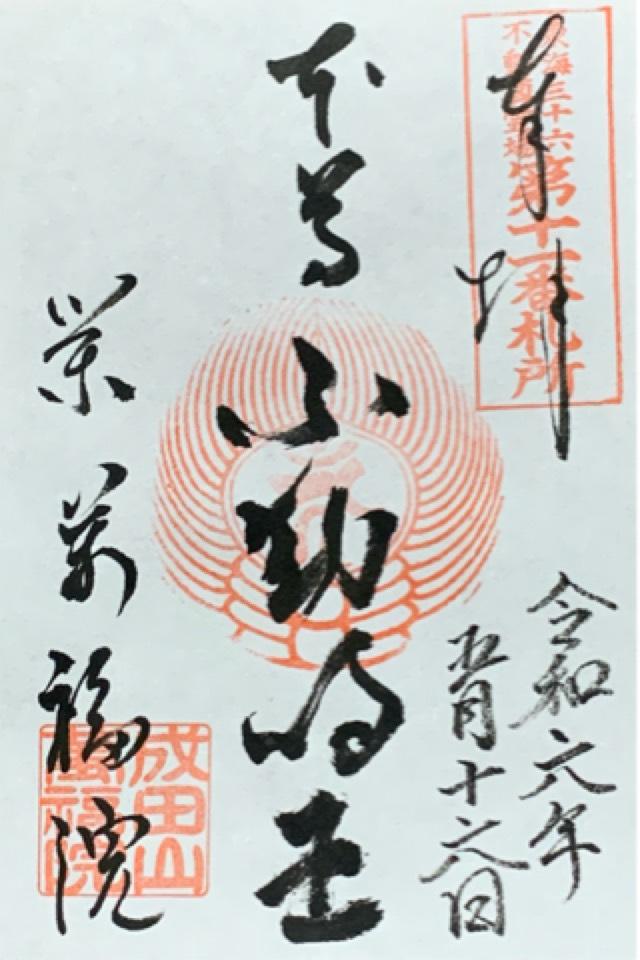 奉拝
東海三十六
不動尊霊場
第十一番札所
令和六年
五月十六日
本尊不動明王
栄萬福院
成田山
萬福院